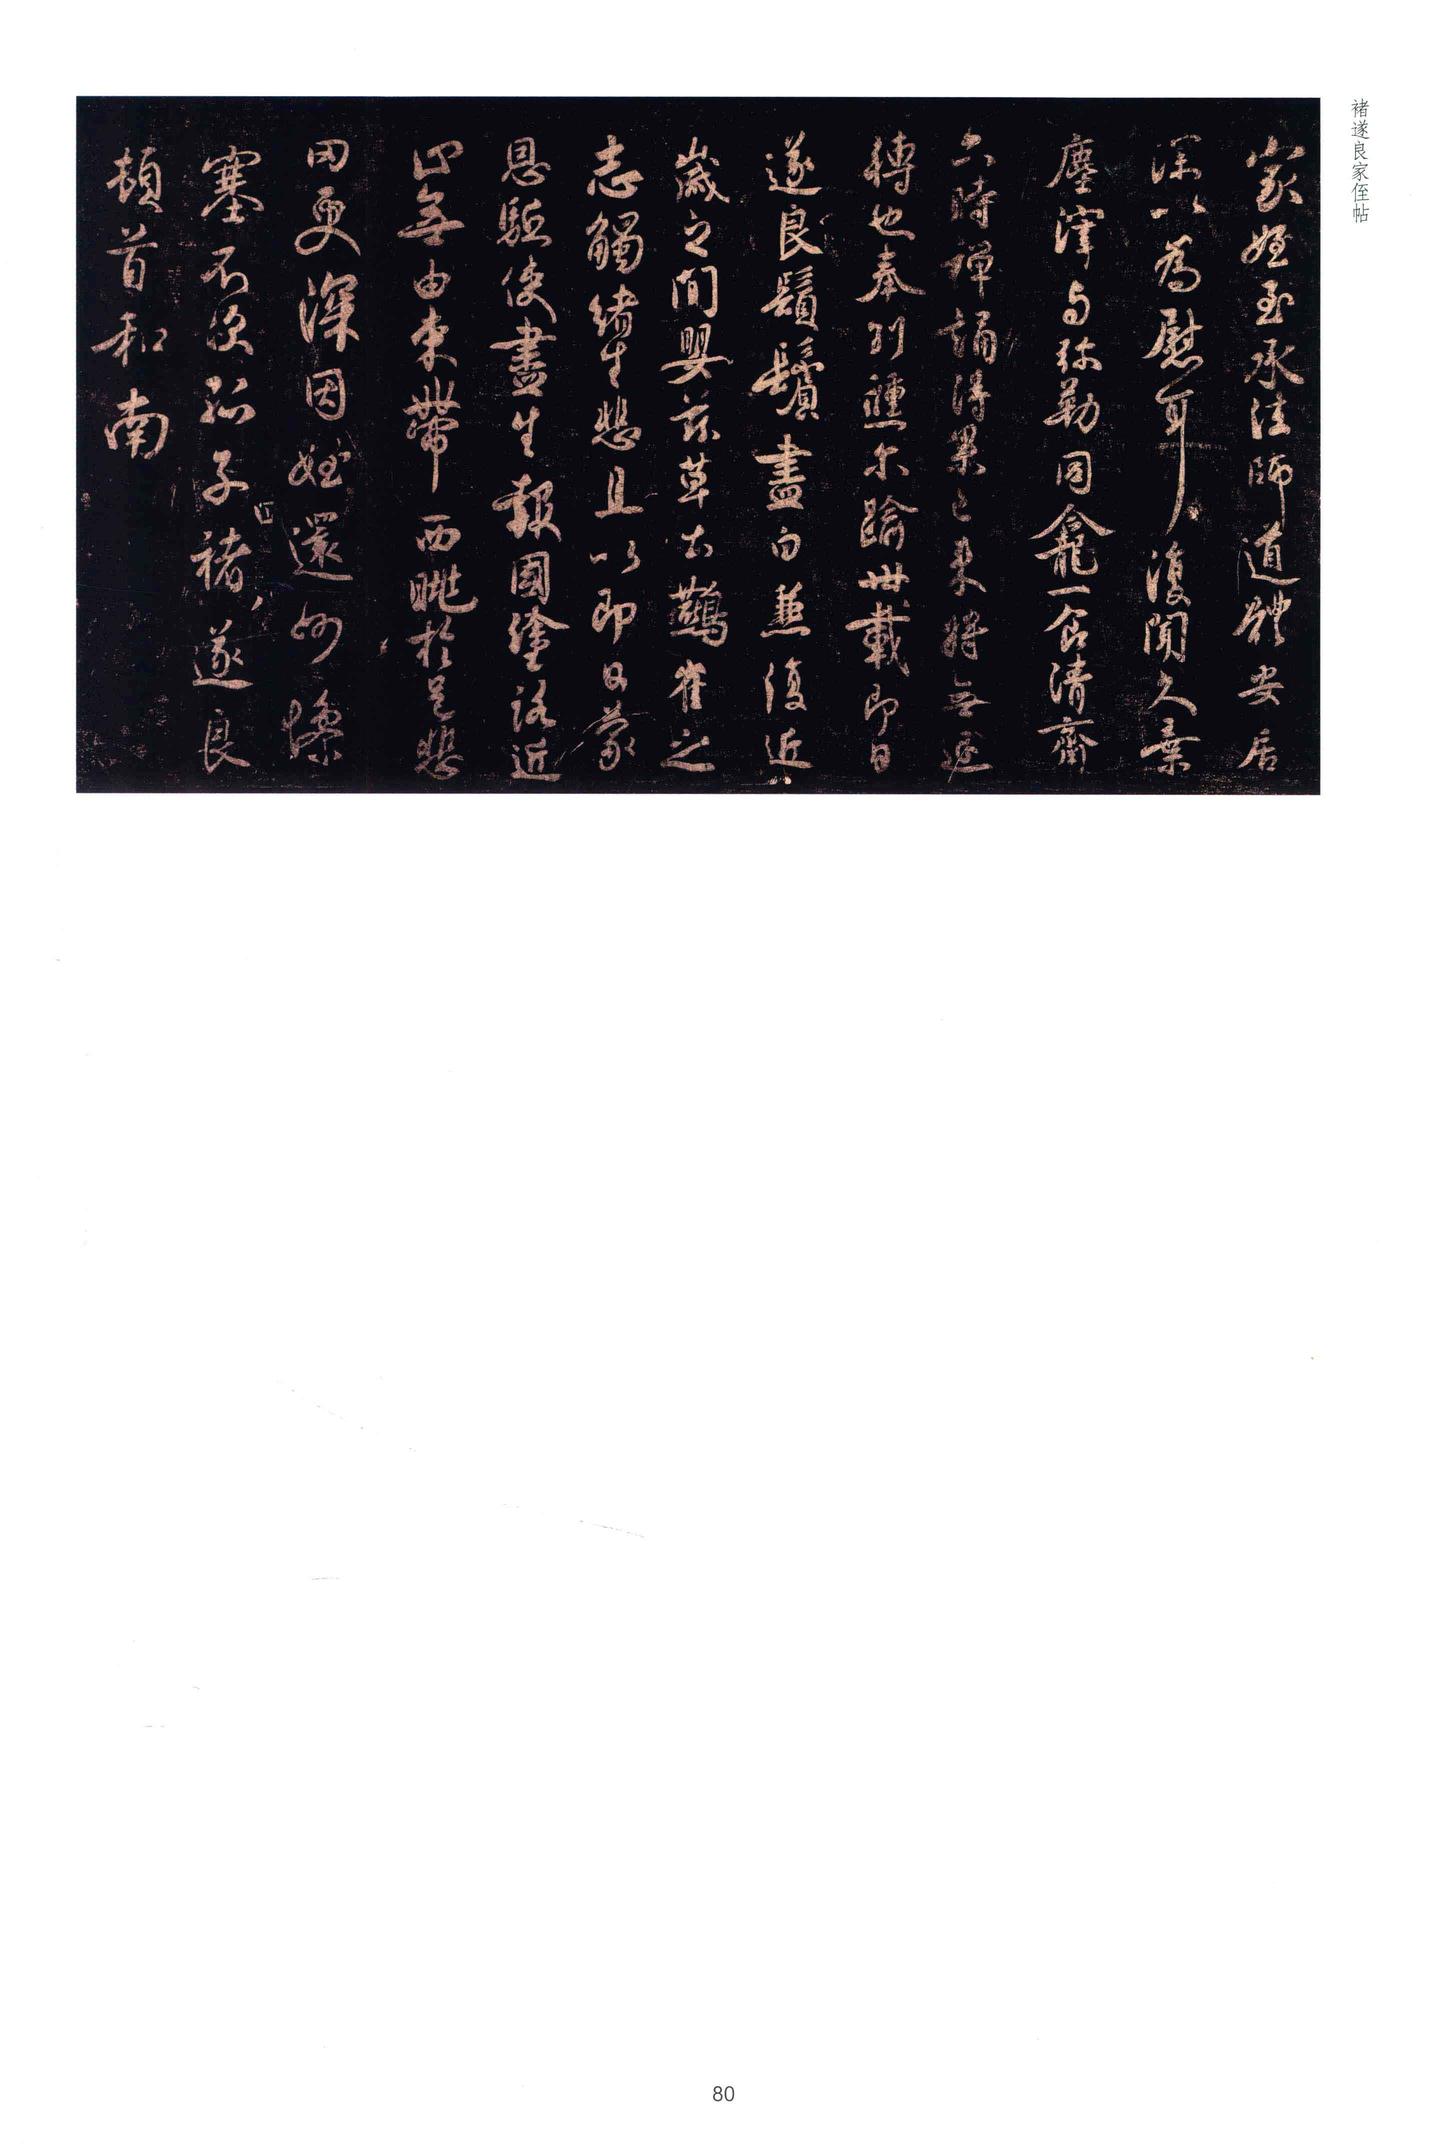 褚遂良家侄帖
家姪至承法師道體安居
深以為慰耳復聞久棄
塵滓与弥勒同龕一食清齋
六時禪誦得果已来將無退
轉也奉別倏尔踰卌載即日
遂良鬚鬢盡白兼復近
歲之間嬰兹草土鷰雀之
志觸緒生悲且以即日蒙
恩驅使盡生報國塗路近
止無由束帶西眺於邑悲
因更深因姪還州慘
塞不次孤子褚遂良
頓首和南
80